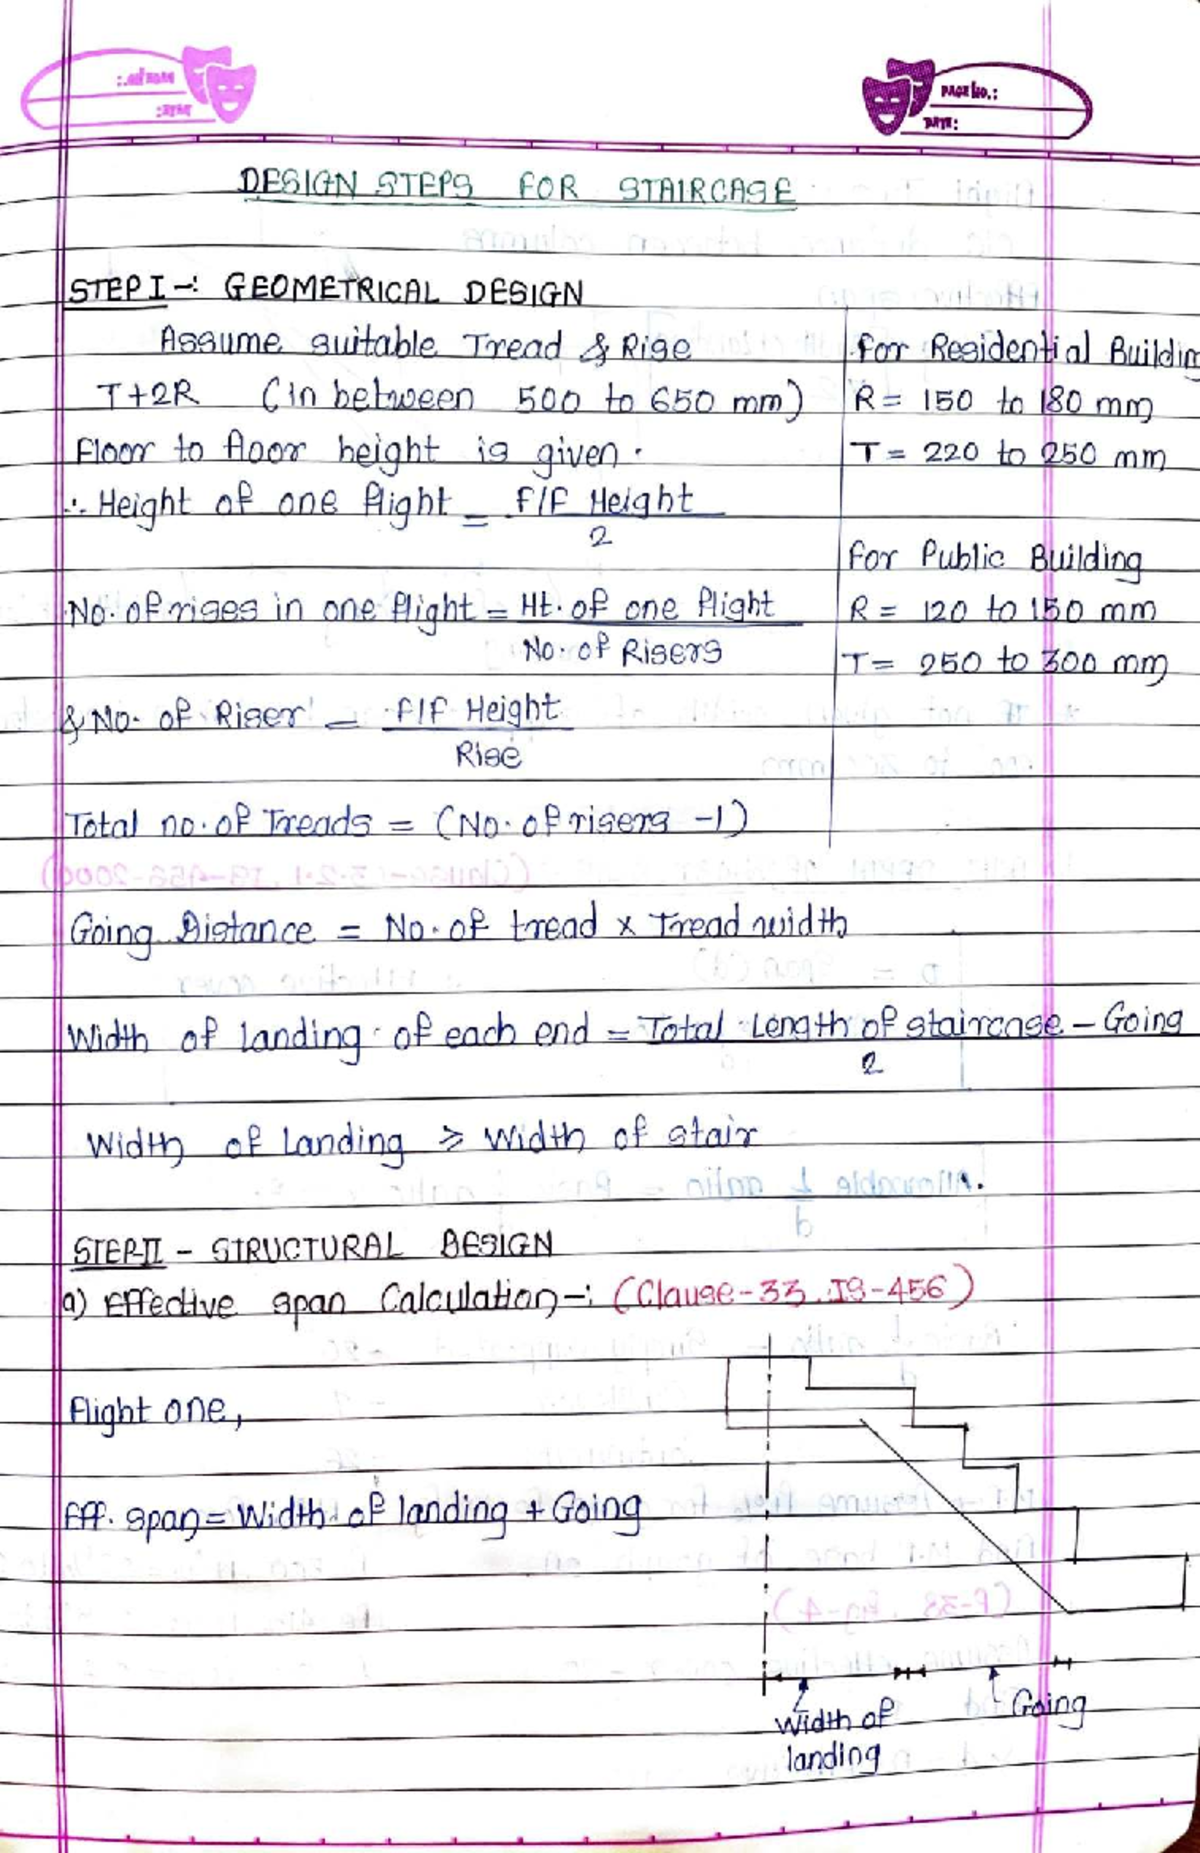 PAGE No.:
DATE:
DESIGN STEPS FOR STAIRCASE
STEP I -: GEOMETRICAL DESIGN
Assume suitable Tread & Rise
T+2R (in between 500 to 650 mm)
Floor to floor height is given.
∴ Height of one flight = F/F Height / 2
No. of rises in one flight = Ht. of one flight / No. of Risers
& No. of Riser = F/F Height / Rise
Total no. of Treads = (No. of risers -1)
For Residential Buildin
R = 150 to 180 mm
T = 220 to 250 mm
For Public Building
R = 120 to 150 mm
T = 250 to 300 mm
Going Distance = No. of tread x Tread width
Width of landing of each end = Total Length of staircase - Going / 2
Width of Landing ≥ Width of stair
STEP-II - STRUCTURAL DESIGN
a) Effective span Calculation-: (Clause-33, IS-456)
Flight one,
Eff. span = Width of landing + Going
Width of
landing
Going